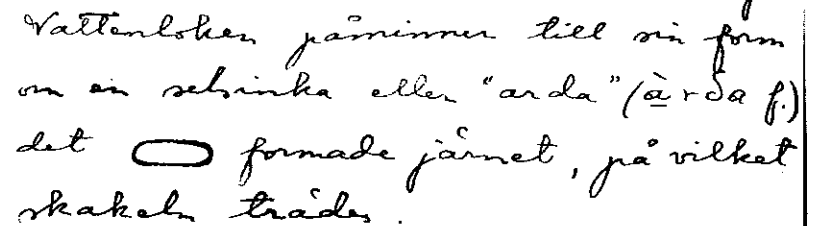 Vattenloken påminner till sin form
om en selsinka eller "arda" (àrða f.)
det formade järnet, på vilket
skakeln trädes.